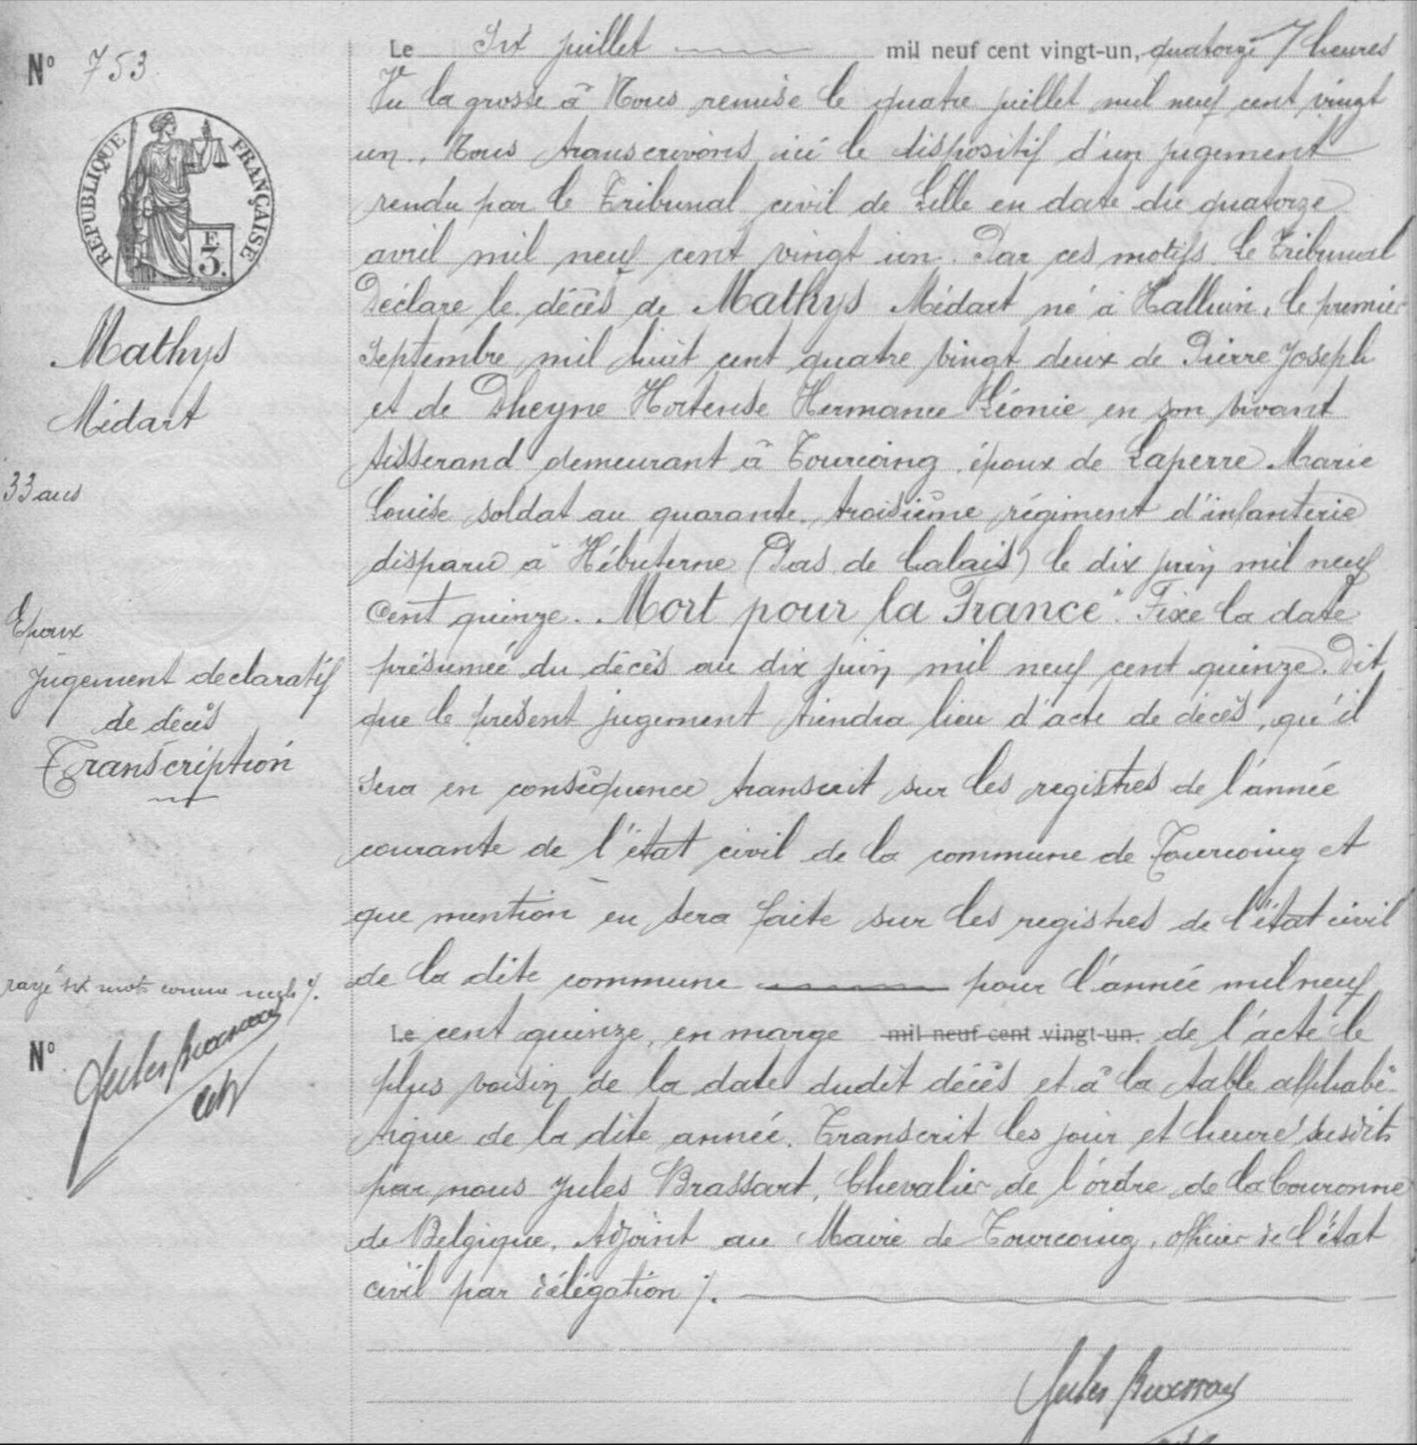 N° 753
RÉPUBLIQUE FRANÇAISE
E
3.
Mathys
Médart
33 ans
Epoux
jugement declaratif
de décès
Transcription
rayé six mots comme nuls ./.
N°
Le Six juillet mil neuf cent vingt-un, quatorze heures
Vu la grosse à Nous remise le quatre juillet mil neuf cent vingt
un, Nous transcrivons ici le dispositif d'un jugement
rendu par le Tribunal civil de Lille en date du quatorze
avril mil neuf cent vingt un. Par ces motifs. Le Tribunal
Déclare le décès de Mathys Médart né à Halluin, le premier
Septembre mil huit cent quatre vingt deux de Pierre Joseph
et de Dheyne Hortense Hermance Léonie en son vivant
tisserand demeurant à Tourcoing époux de Laperre Marie
Louise soldat au quarante troisième régiment d'infanterie
disparu à Hébuterne (Pas de Calais) le dix juin mil neuf
cent quinze. Mort pour la France". Fixe la date
présumée du décès au dix juin mil neuf cent quinze. Dit
que le présent jugement tiendra lieu d'acte de décès, qu'il
sera en conséquence transcrit sur les registres de l'année
courante de l'état civil de la commune de Tourcoing et
que mention en sera faite sur les registres de l'état civil
de la dite commune pour l'année mil neuf
Le cent quinze, en marge mil neuf cent vingt-un. de l'acte le
plus voisin de la date dudit décès et à la table alphabé-
tique de la dite année. Transcrit les jour et heure susdits
par nous Jules Brassart, Chevalier de l'ordre de la Couronne
de Belgique, Adjoint au Maire de Tourcoing, officier de l'état
civil par délégation ./.